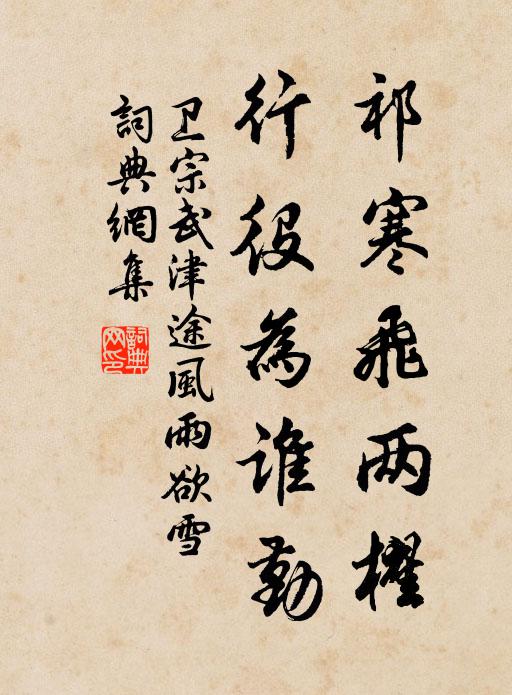 祁寒飛两櫂
行役為誰勤
卫宗武津途風雨欲雪
詞典網集
詞典網印